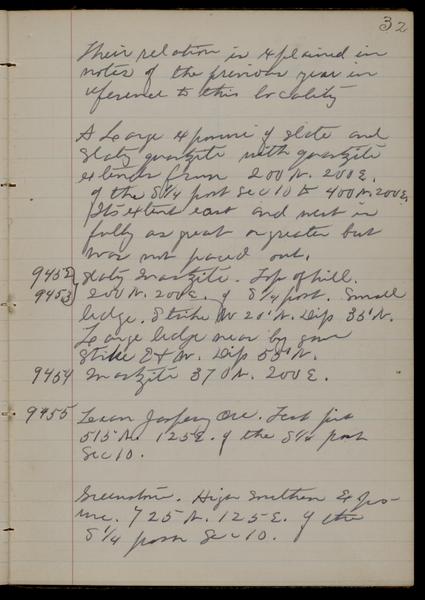 32
Their relation is explained in
notes of the previous year in
reference to this locality
A Large exposure of slate and
slaty quartzite with quartzite
extends from 200 N. 200 E.
of the S¼ post Sec 10 to 400 N. 200 E.
Its extent east and west is
fully as great or greater but
was not paced out.
9452 Slaty Quartzite. Top of hill.
9453 200 N. 200 E. of S¼ post. Small
ledge. Strike W 20° N. Dip 35° N.
Large ledge near by gave
Strike E & W. Dip 55° N.
9454 Quartzite 370 N. 200 E.
9455 Lean Jaspery Ore. Test pit
515 N. 125 E. of the S¼ post
Sec 10.
Greenstone. High Southern Expos-
ure. 725 N. 125 E. of the
S¼ post Sec 10.